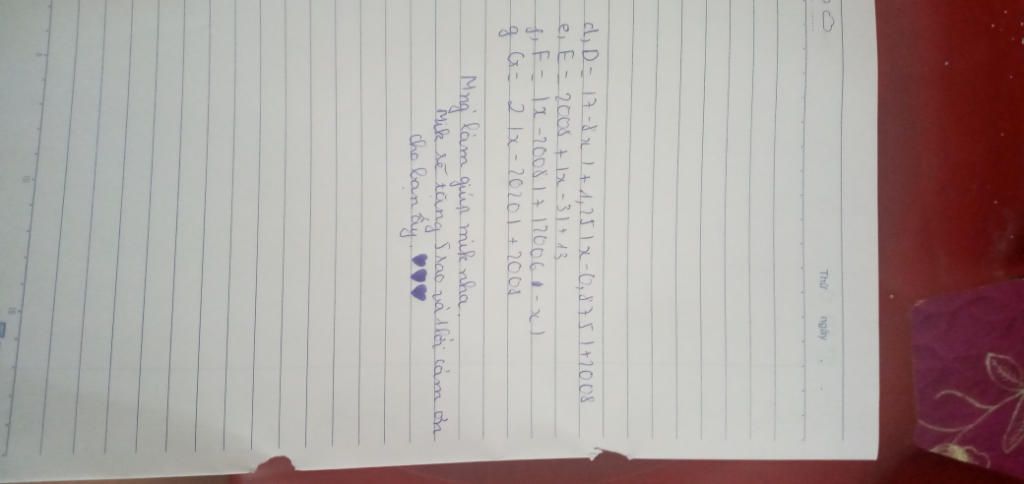 Thứ ngày
d, D = |7-8x|+1,25|x-0,875|+2008
e, E = 2008 + |x-3|+13
f, F = |x-2008|+|2006-x|
g G = 2|x-2020|+2008
Mng làm giúp mik nha.
Mik sẽ tặng 5 sao và 1 lời cảm ơn
cho bạn ấy. ♥♥♥